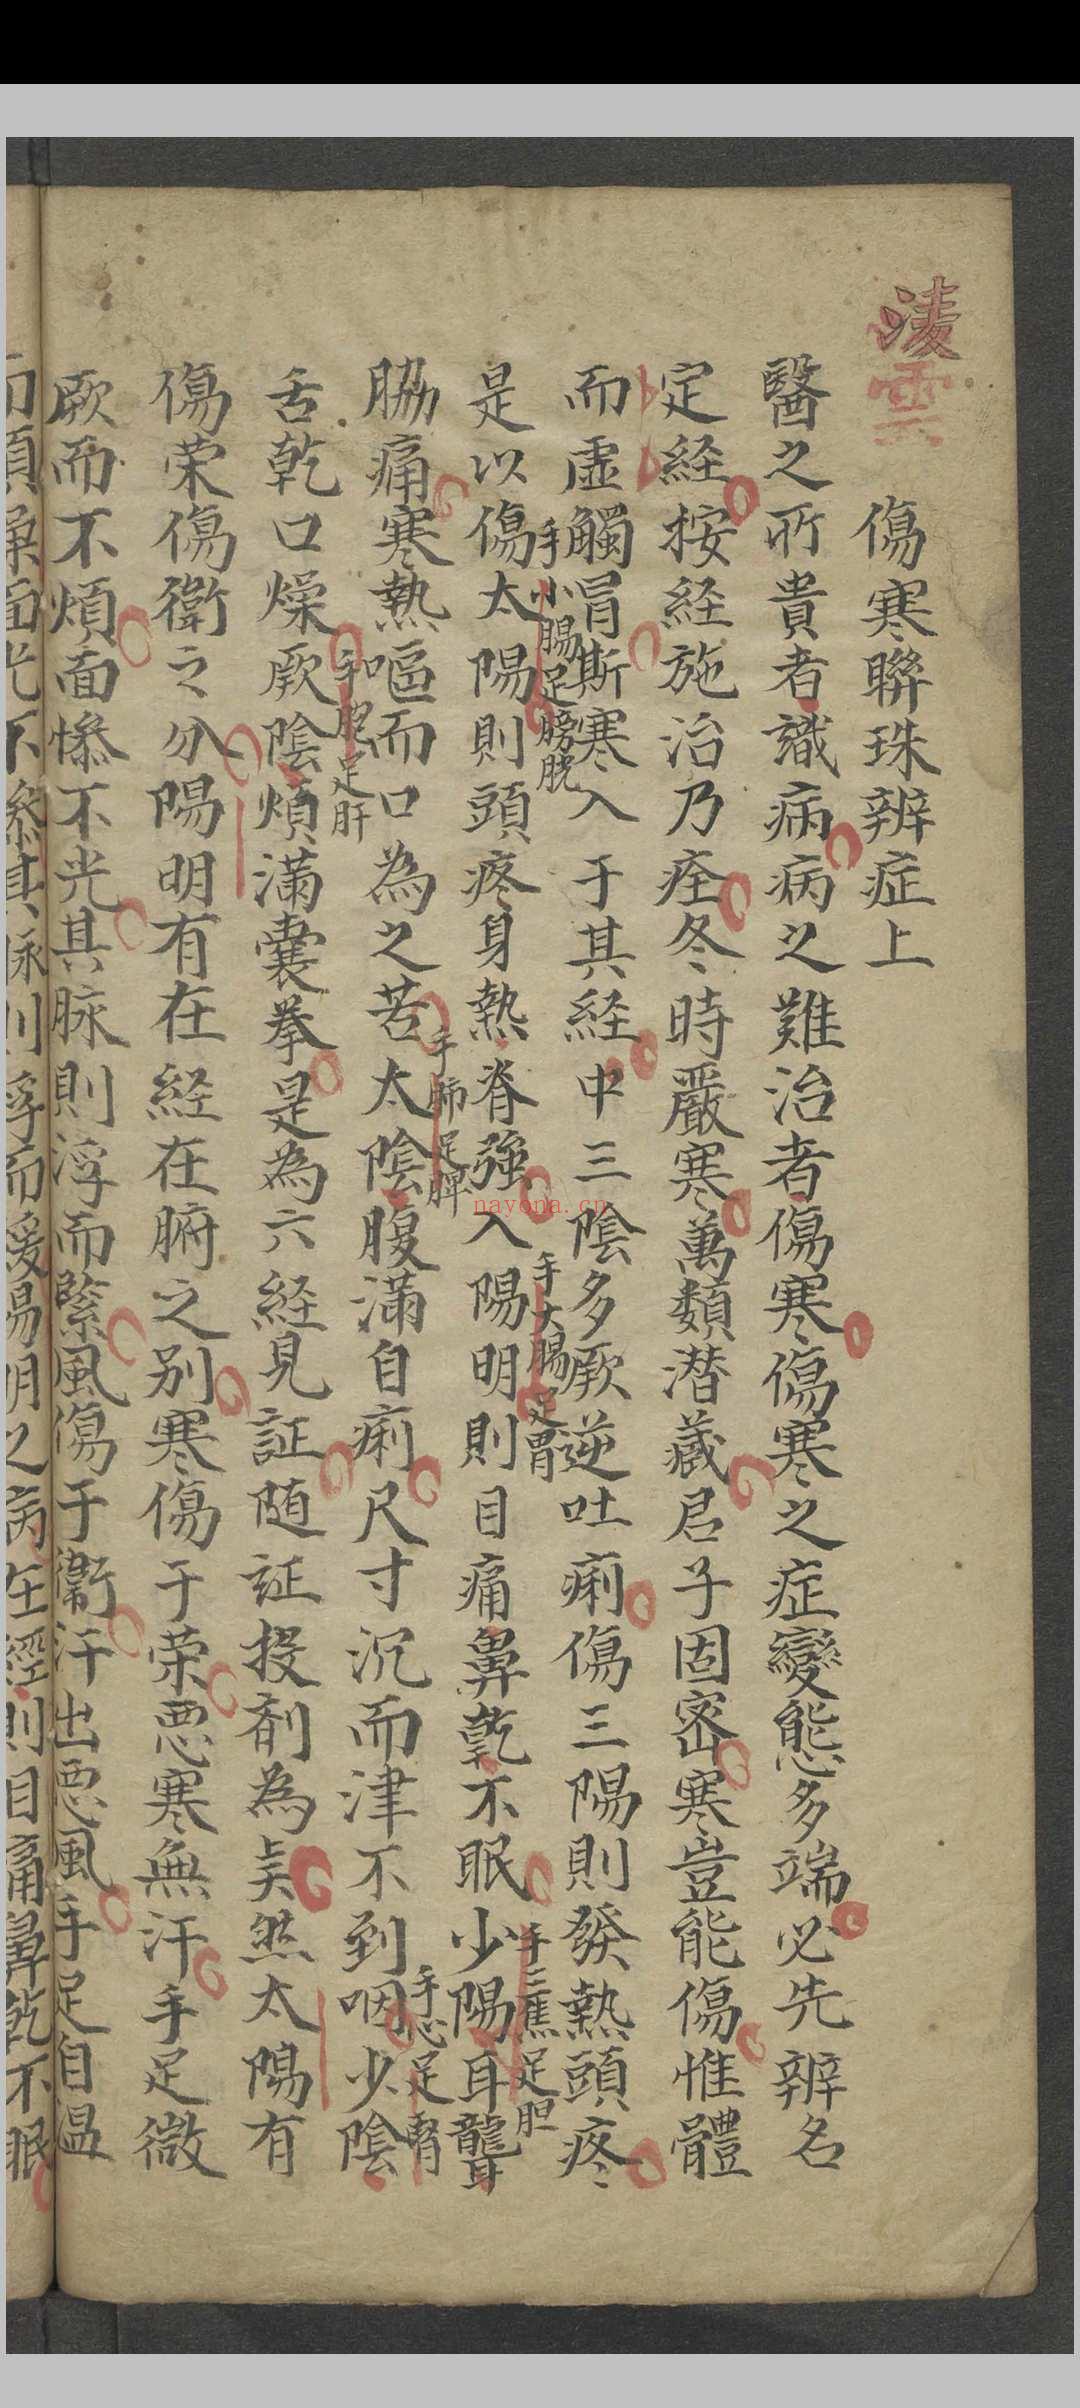 凌雲
傷寒聯珠辨症上
醫之所貴者識病病之難治者傷寒傷寒之症變態多端必先辨名
定経按経施治乃痊冬時嚴寒萬類潜藏君子固密寒豈能傷惟體
而虛觸冐斯寒入于其経中三陰多厥逆吐痢傷三陽則發熱頭疼
手小腸足膀胱
手大腸足胃
手三焦足胆
是以傷太陽則頭疼身熱脊強入陽明則目痛鼻乾不眠少陽耳聾
脇痛寒熱嘔而口為之苦太陰腹滿自痢尺寸沉而津不到咽少陰
手肺足脾
手心足腎
舌乾口燥厥陰煩滿囊拳是為六経見証随证投剤為美然太陽有
手胞足肝
傷荣傷衛之分陽明有在経在腑之别寒傷于荣悪寒無汗手足微
厥而不煩面惨不光其脉則浮而緊風傷于衛汗出悪風手足自温
而煩燥面光不惨其脉則浮而緩陽明之病在經則目痛鼻乾不眠
nayona.cn